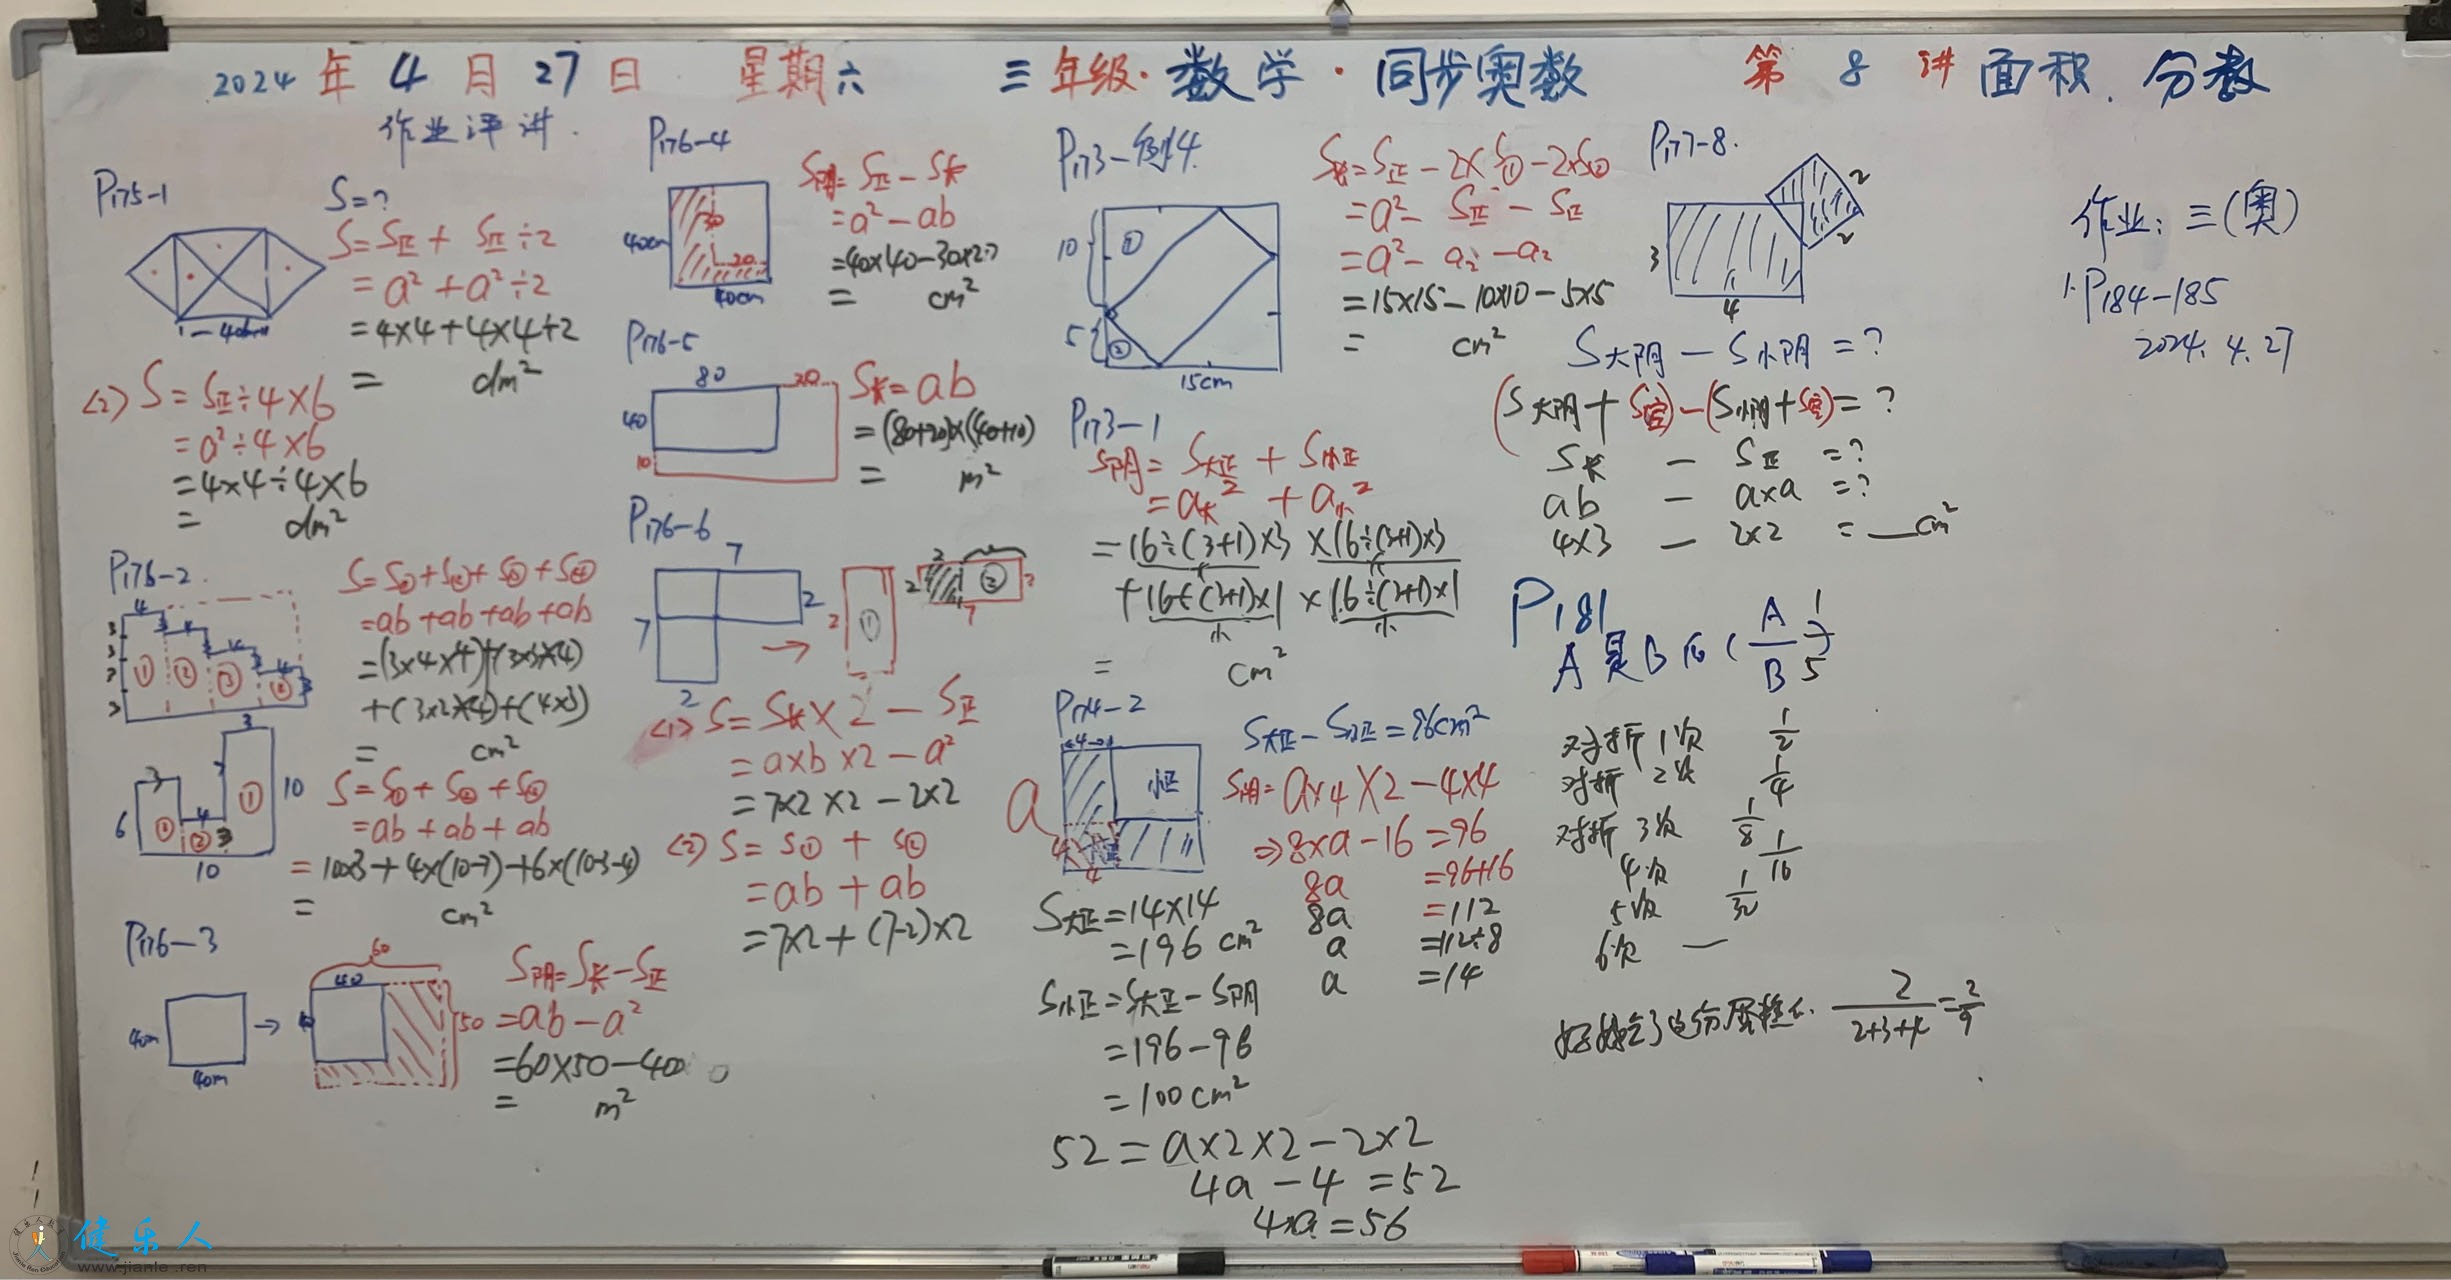 2024年4月27日 星期六 三年级·数学·同步奥数 第8讲 面积、分数
作业评讲.
P175-1
S=?
S=S正+S正÷2
=a²+a²÷2
=4×4+4×4÷2
= dm²
<2> S=S正÷4×6
=a²÷4×6
=4×4÷4×6
= dm²
P176-2.
4
3
3
3
3
① ② ③ ④
S=S①+S②+S③+S④
=ab+ab+ab+ab
=(3×4×4)+(3×3×4)
+(3×2×4)+(4×3)
= cm²
3
3
7
4
6
10
10
① ② ③
S=S①+S②+S③
=ab+ab+ab
=10×3+4×(10-7)+6×(10-3-4)
= cm²
P176-3
40m
40m
60
40
50
S阴=S长-S正
=ab-a²
=60×50-40
= m²
P176-4
30
20
40cm
40cm
S阴=S正-S长
=a²-ab
=40×40-30×20
= cm²
P176-5
80
20
40
10
S长=ab
=(80+20)×(40+10)
= m²
P176-6
7
2
7
2
2
①
2
2
②
7
<1> S=S长×2-S正
=a×b×2-a²
=7×2×2-2×2
<2> S=S①+S②
=ab+ab
=7×2+(7-2)×2
P173-例4
10
5
①
②
15cm
S长=S正-2×S①-2×S②
=a²-S正-S正
=15×15-10×10-5×5
= cm²
P173-1
S阴=S大正+S小正
=a大²+a小²
=16÷(3+1)×3×16÷(3+1)×3
+16÷(3+1)×1×16÷(3+1)×1
小 小
= cm²
P174-2
4
小正
a
4
4
S大正-S小正=96cm²
S阴=a×4×2-4×4
⇒8×a-16=96
8a=96+16
8a=112
a=112÷8
a=14
S大正=14×14
=196cm²
S小正=S大正-S阴
=196-96
=100cm²
52=a×2×2-2×2
4a-4=52
4×a=56
P177-8.
2
2
3
4
S大阴-S小阴=?
(S大阴+S空)-(S小阴+S空)=?
S长 - S正 =?
ab - a×a =?
4×3 - 2×2 =__cm²
P181
A是B的(A/B) 1/5
对折1次 1/2
对折2次 1/4
对折3次 1/8
4次 1/16
5次 1/32
6次 —
2/(2+3+4)=2/9
作业:三(奥)
1.P184-185
2024.4.27
健乐人
www.jianle.ren